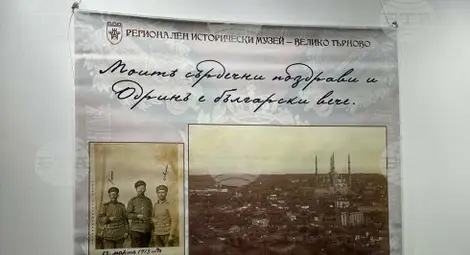 РЕГИОНАЛЕН ИСТОРИЧЕСКИ МУЗЕЙ – ВЕЛИКО ТЪРНОВО
Моитъ сърдечни поздрави и
Одринъ е български вече.
13 мартъ 1913